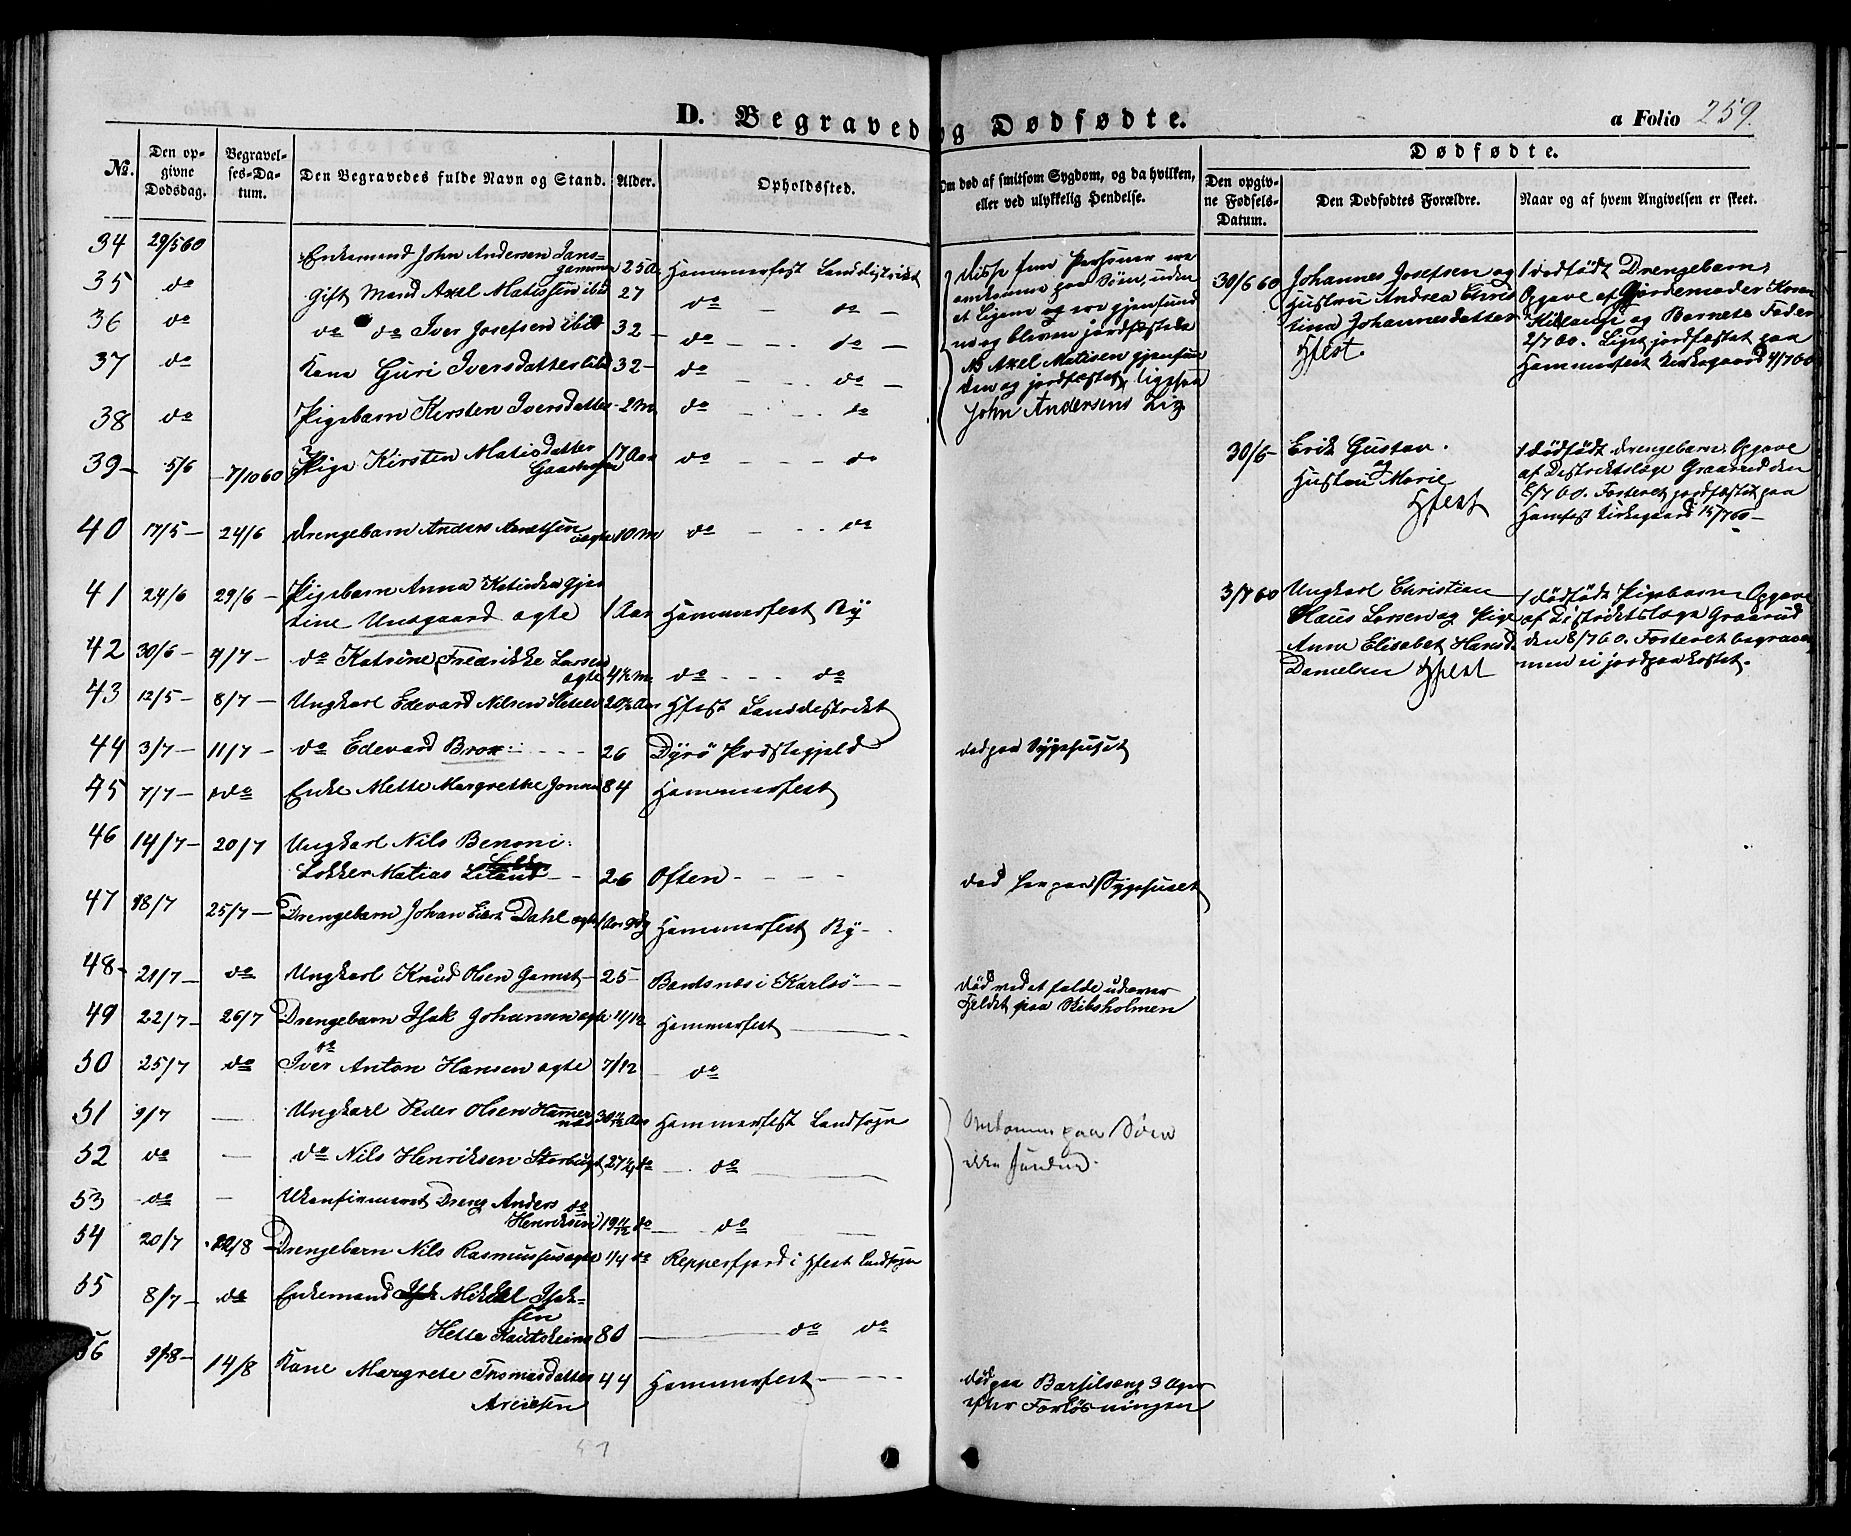 D. Begraved og Dødfødte.
a Folio 259.
No.
Den opgivne Dødsdag.
Begravelses-Datum.
Den Begravedes fulde Navn og Stand.
Alder.
Opholdssted.
Om død af smitsom Sygdom, og da hvilken,
eller ved ulykkelig Hendelse.
Dødfødte.
Den opgivne Fødsels-Datum.
Den Dødfødtes Forældre.
Naar og af hvem Angivelsen er skeet.
34 29/5 60 Enkemand John Andersen
25 Hammerfest Landdistrikt
35 do Gift Mand Axel Matissen 27 do - do -
36 do do do Iver Josefsen 32 - do - - do -
37 do Kone Guri Iversdatter 32 - do - - do -
38 do Pigebarn Kirsten Iversdatter 2 m do - - do
39 - 5/6 - 7/10 60 Pige Kirsten Matisdatter
17 Aar do - - do
40 17/5 - 24/6 Drengebarn Anders
ægte 10 m do - - do
41 24/6 29/6 - Pigebarn Anna
tine Unsgaard ægte 1 Aar Hammerfest By
42 30/6 - 4/7 - do Katrine Fredrikke Larsen
ægte 4 1/2 m do - - do
43 12/5 - 8/7 - Ungkarl Edevard Nilsen Hfest Landdestrikt
44 3/7 - 11/7 - do Edevard Brox 26 Dyrö Præstegjeld
45 7/7 - do Enke Mette Margrethe 84 Hammerfest
46 14/7 - 20/7 Ungkarl Nils Benoni
Matias 26 Often
47 18/7 25/7 - Drengebarn Johan Dahl ægte Hammerfest By -
48 - 21/7 - do Ungkarl Knud Olsen Gamst - 25 - i Karlsö
49 22/7 - 26/7 Drengebarn Isak Johansen ægte 11/12 Hammerfest
50 25/7 do do
Iver Anton Hansen ægte 7/12 do
51 9/7 Ungkarl Peder Olsen Hammerfest Landsogn
52 do do Nils Henriksen Storbugt 27 do
53 do Ukonfirmeret Dreng Anders do
Henriksen do
54 20/7 22/8 Drengebarn Nils Rasmussen ægte 1/4 do Repperfjord i Hfest Landsogn
55 8/7 - do Enkemand Mikkel Isak-
sen
Hette Kautokeino 80 do do
56 9/8 - 14/8 Kone Margrete Thomasdatter 44 Hammerfest
Disse fem Personer ere
omkomne paa Søen, uden
at Ligene ere gjenfund
ne og bleven jordfæstede
NB Axel Matisen gjenfun
den og jordfæstet, ligesaa
John Andersens Lig
død paa Sygehuset
død her paa Sygehuset
død ved at falde udover
Fjeldet paa Ribsholmen
Omkommen paa Søen
ikke funden.
død paa Barselseng 3 Uger
efter Forløsningen
30/6 60 Johannes Josefsen og
Hustru Andrea Chris
tina Johannesdatter
Hfest.
1 dødfødt Drengebarn,
Opgave af Gjordemoder
og Barnets Fader
2/7 60. Liget jordfæstet paa
Hammerfest Kirkegaard 4/7 60
30/6 - Erik Gustav
og
Hustru Marie
Hfest
1 dødfødt Drengebarn, Opgave
af Destriktslæge Graarud den
8/7 60. Fosteret jordfæstet paa
Hamfest Kirkegaard 15/7 60 -
3/7 60 Ungkarl Christian
Claus Larsen og Pige
Anna Elisabet
Danielsen Hfest
1 dødfødt Pigebarn Opgave
af Distriktslæge Graarud
den 8/7 60. Fosteret begravet,
men ei jordpaakastet.